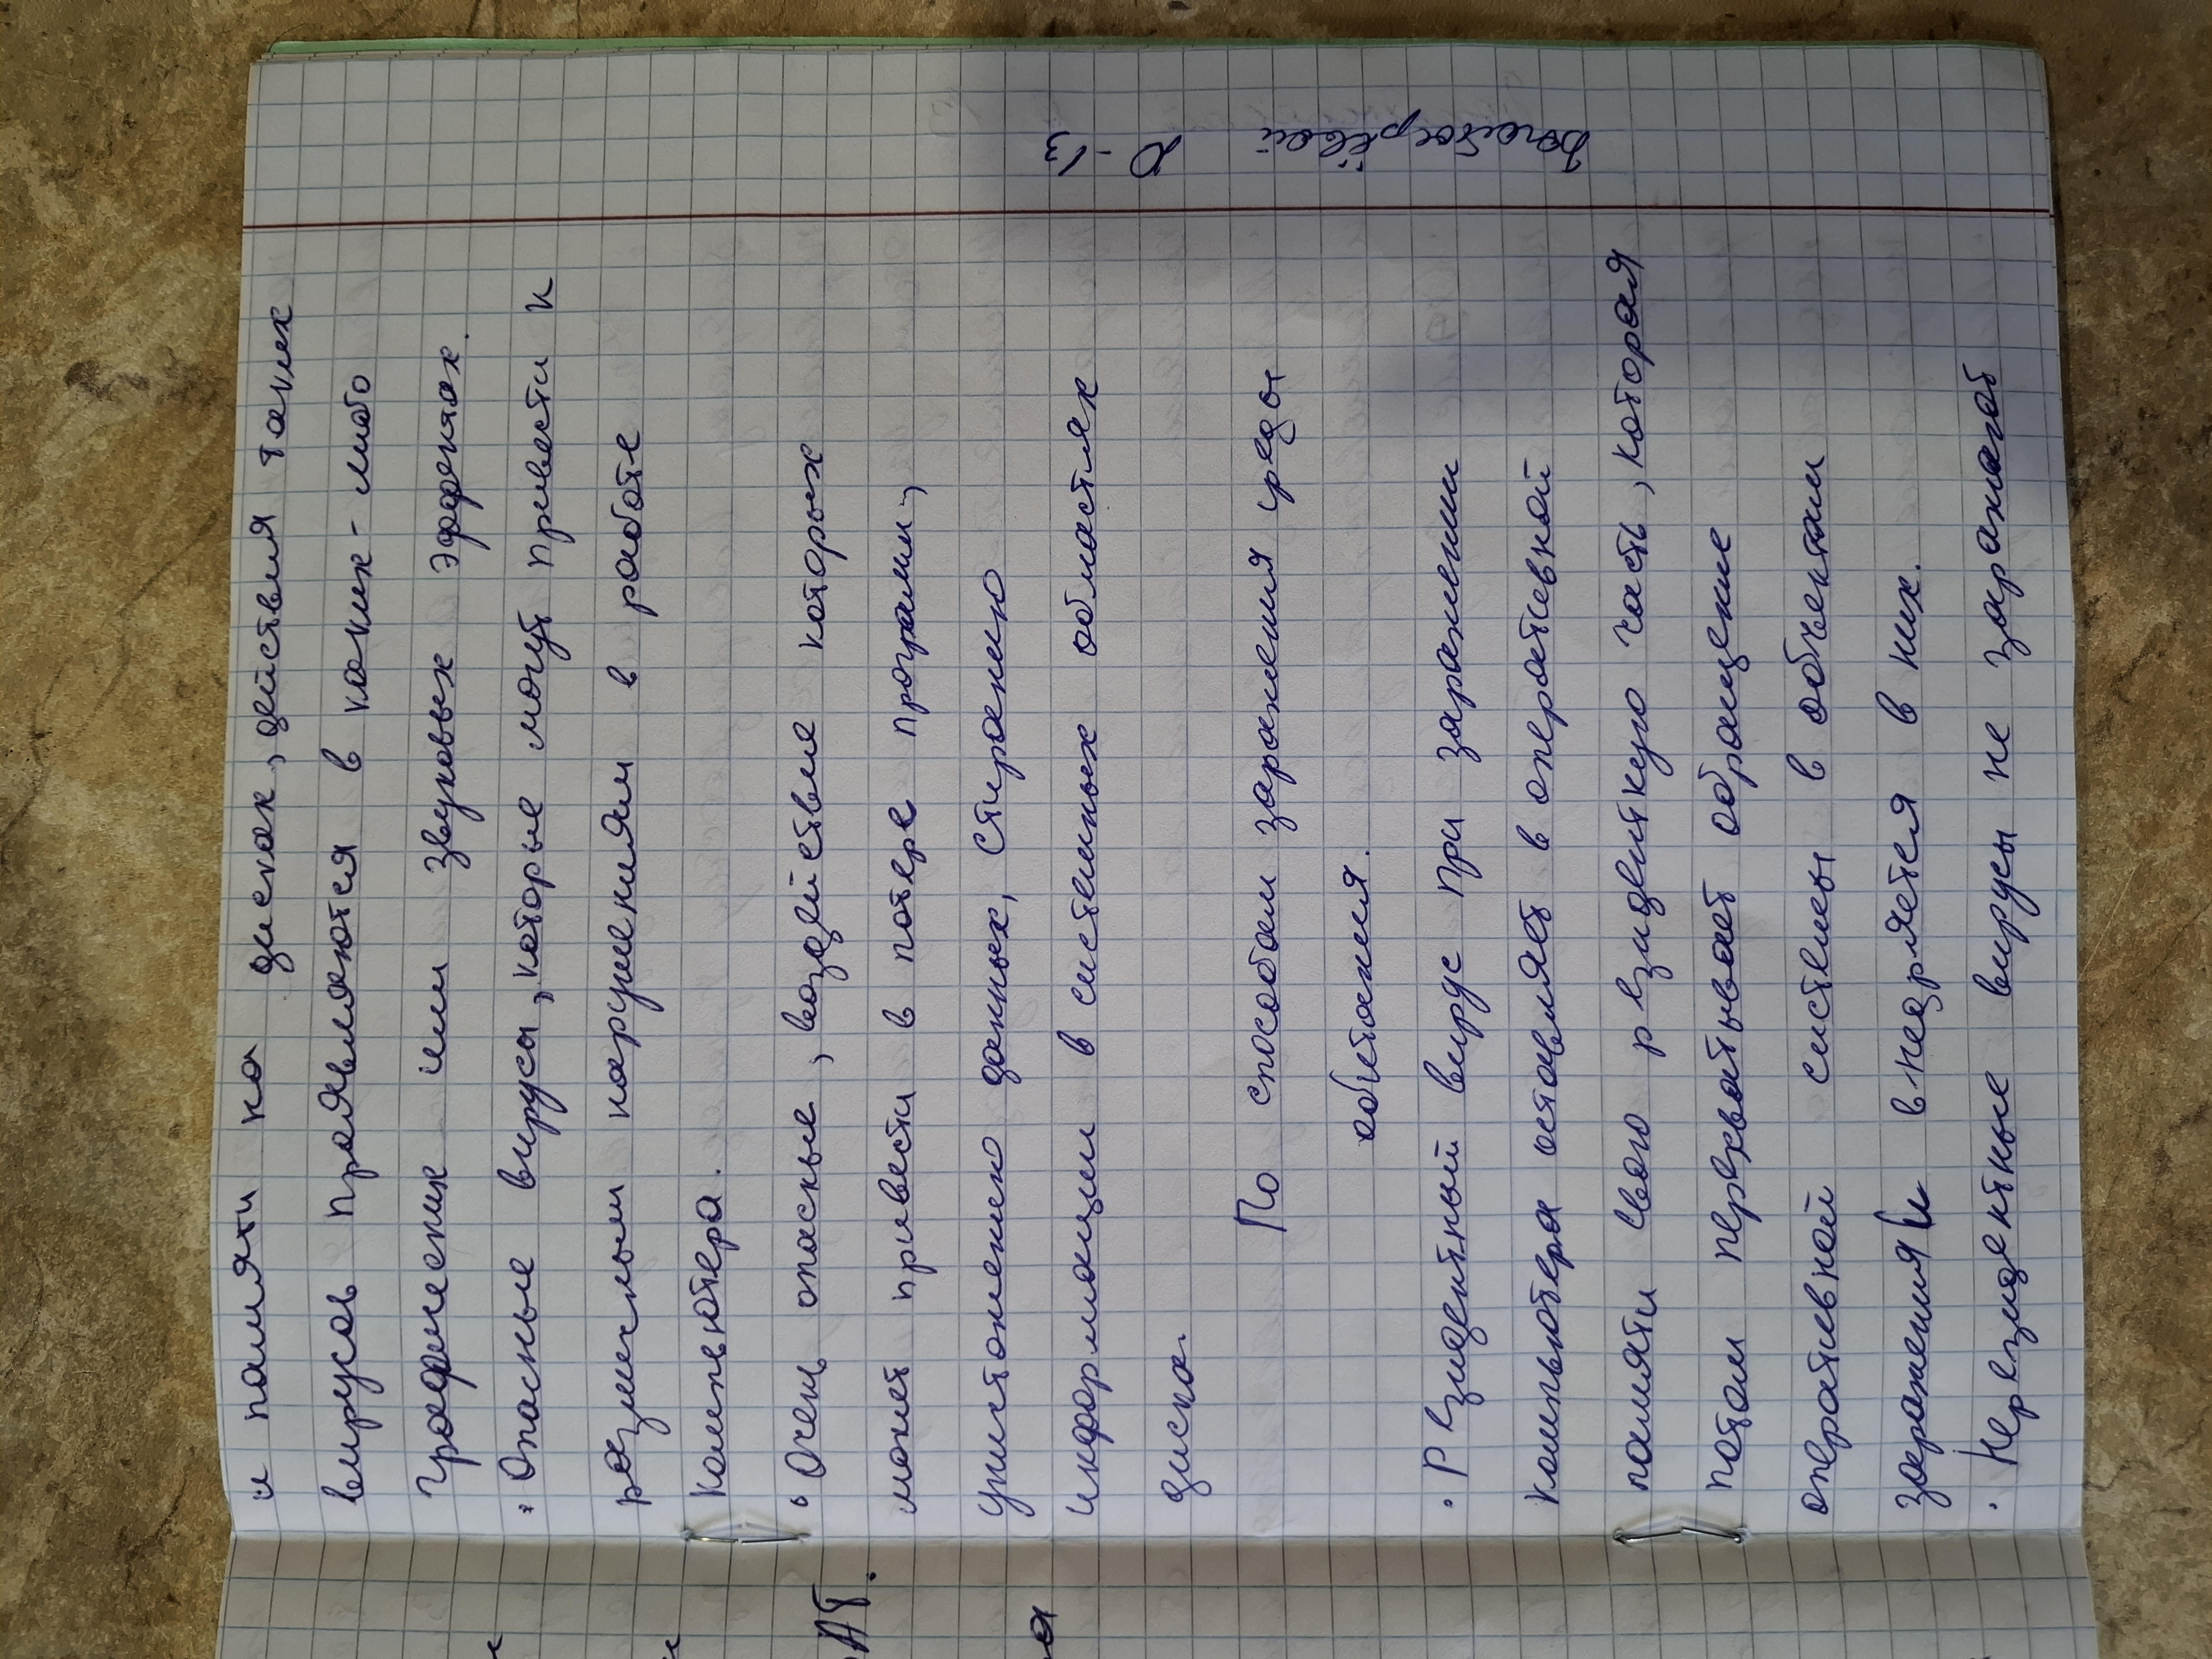 и памяти на дисках, действия таких
вирусов проявляются в каких-либо
графических или звуковых эффектах.
• Опасные вирусы, которые могут привести к
различным нарушениям в работе
компьютера.
• Очень опасные, воздействие которых
может привести в потере программ,
уничтожению данных, стиранию
информации в системных областях
диска.
По способам заражения среды
обитания.
• Резидентный вирус при заражении
компьютера оставляет в оперативной
памяти свою резидентную часть, которая
потом перехватывает обращение
оперативной системы в объектам
заражения и внедряется в них.
• Нерезидентные вирусы не заражают
Ю-13